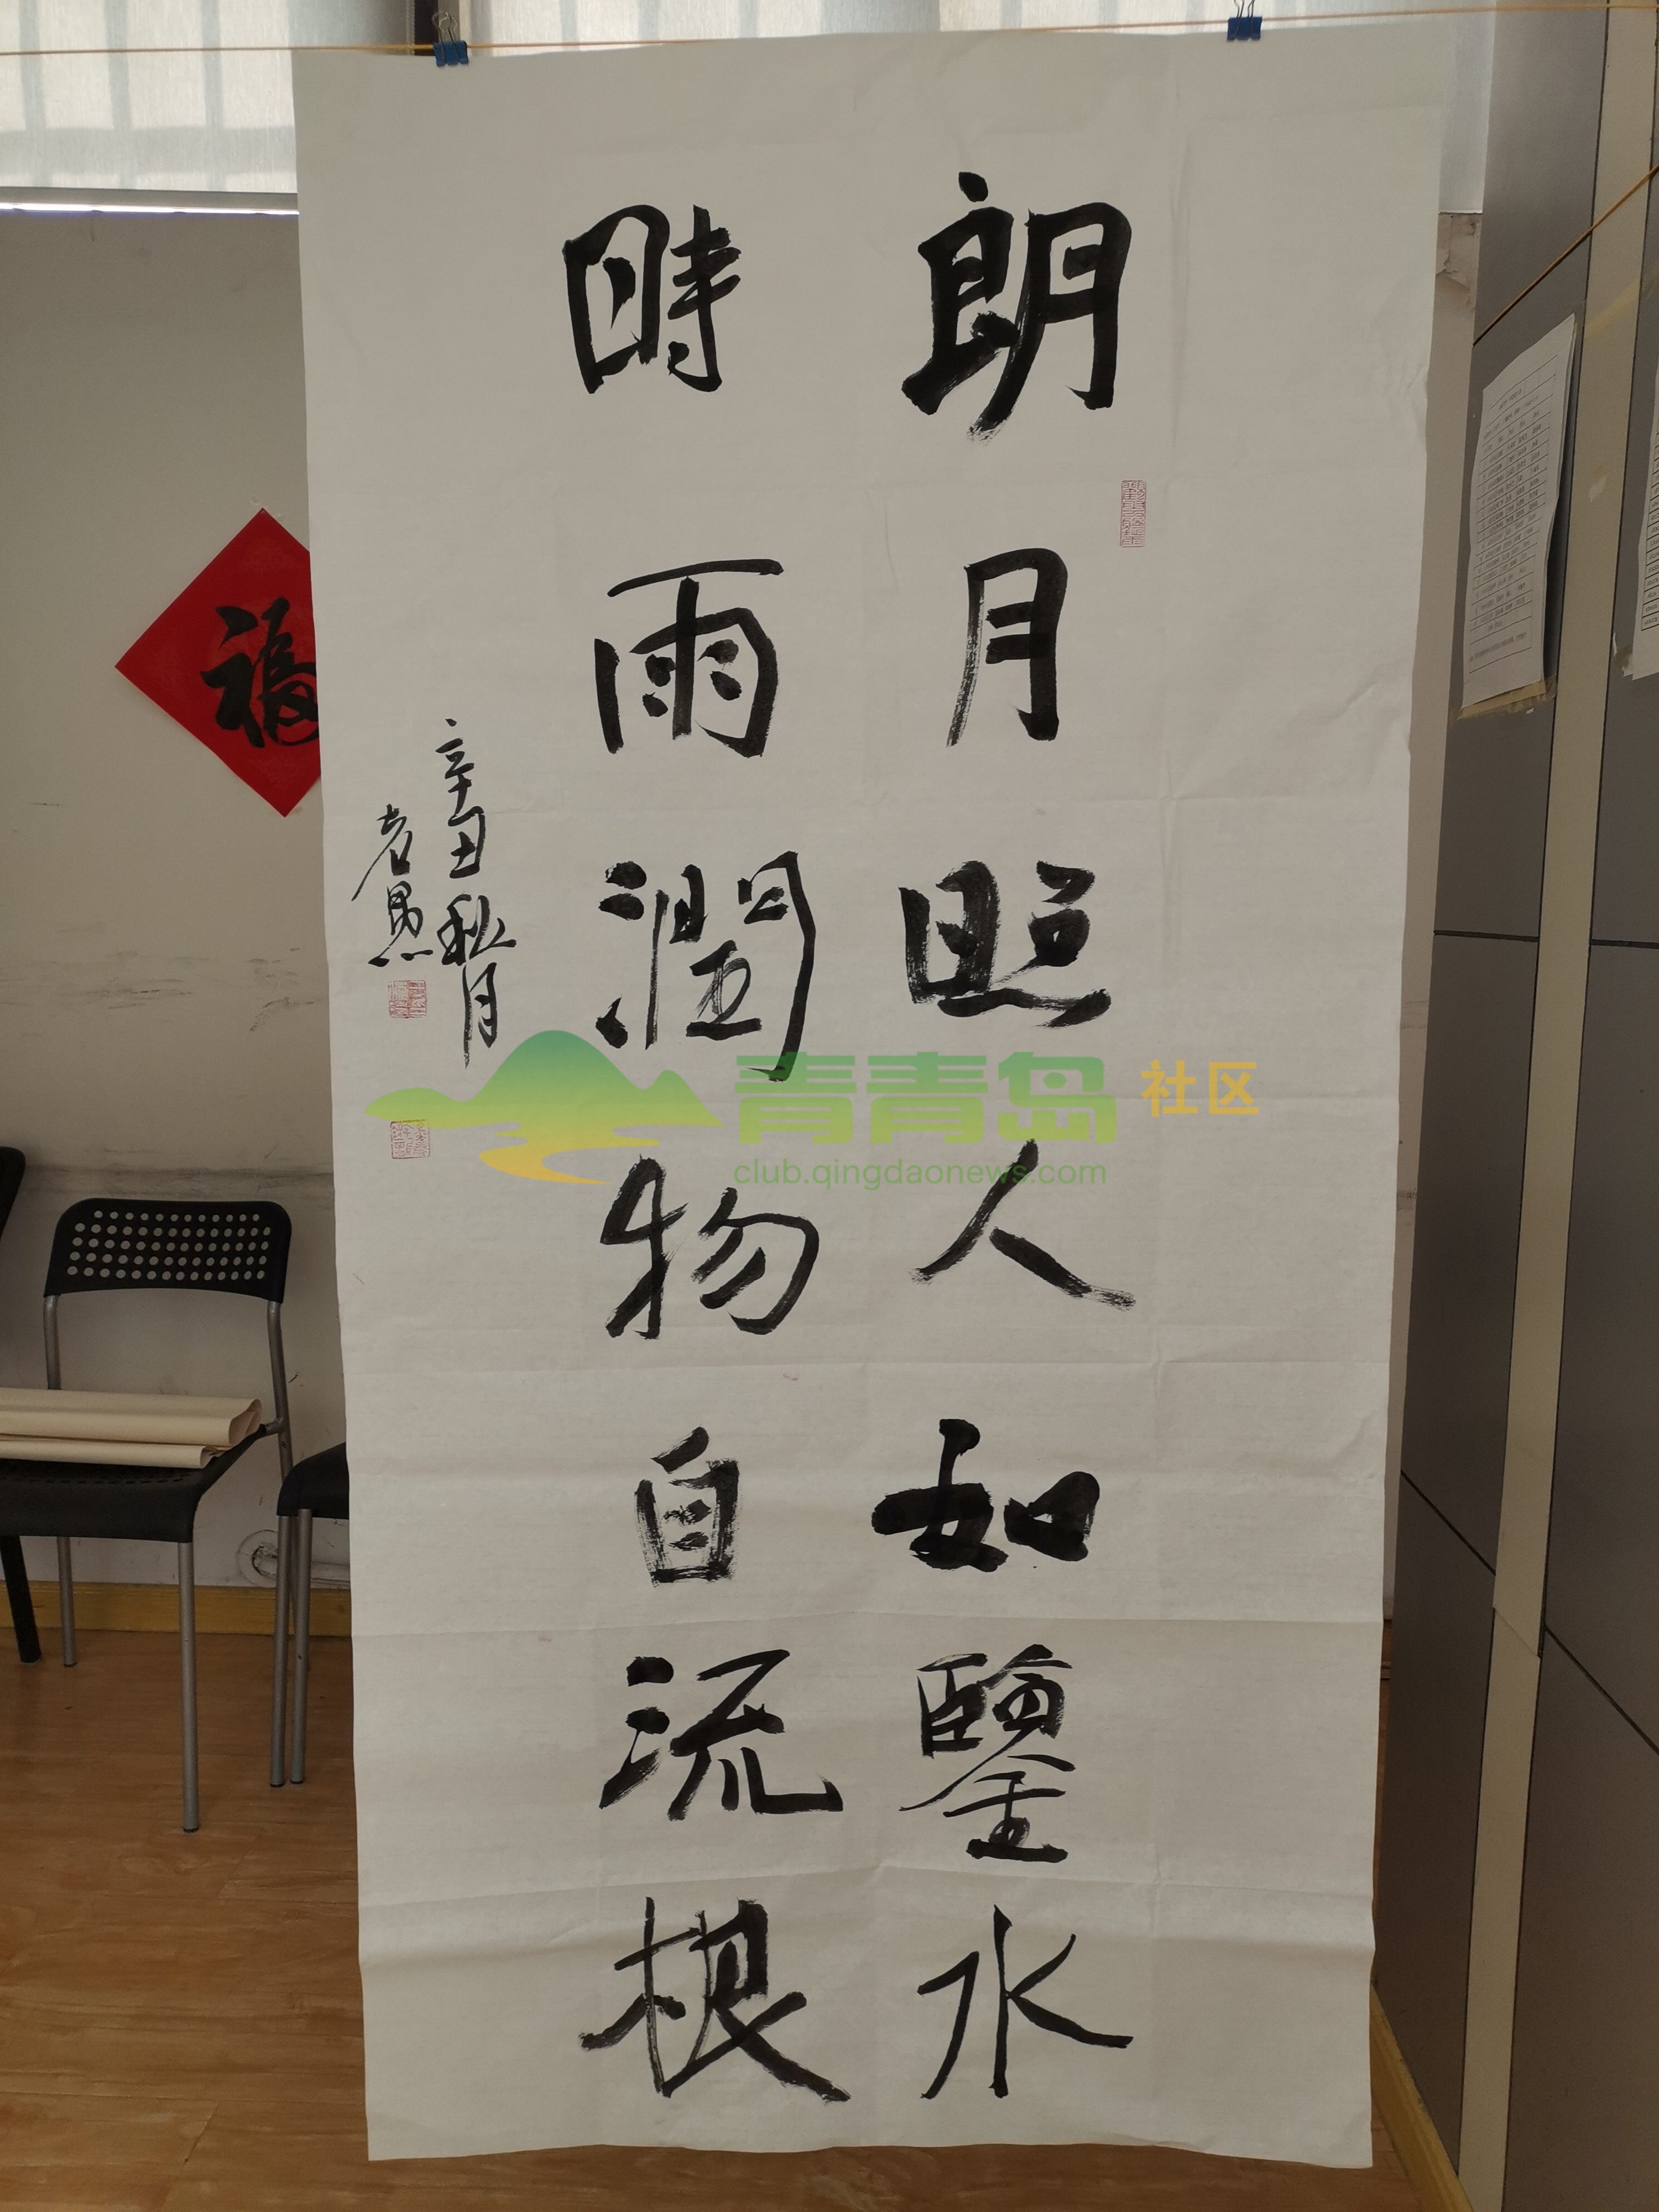 朗月照人如鑒水
時雨潤物自流根
辛丑秋月
老愚
福
青青岛 社区
club.qingdaonews.com